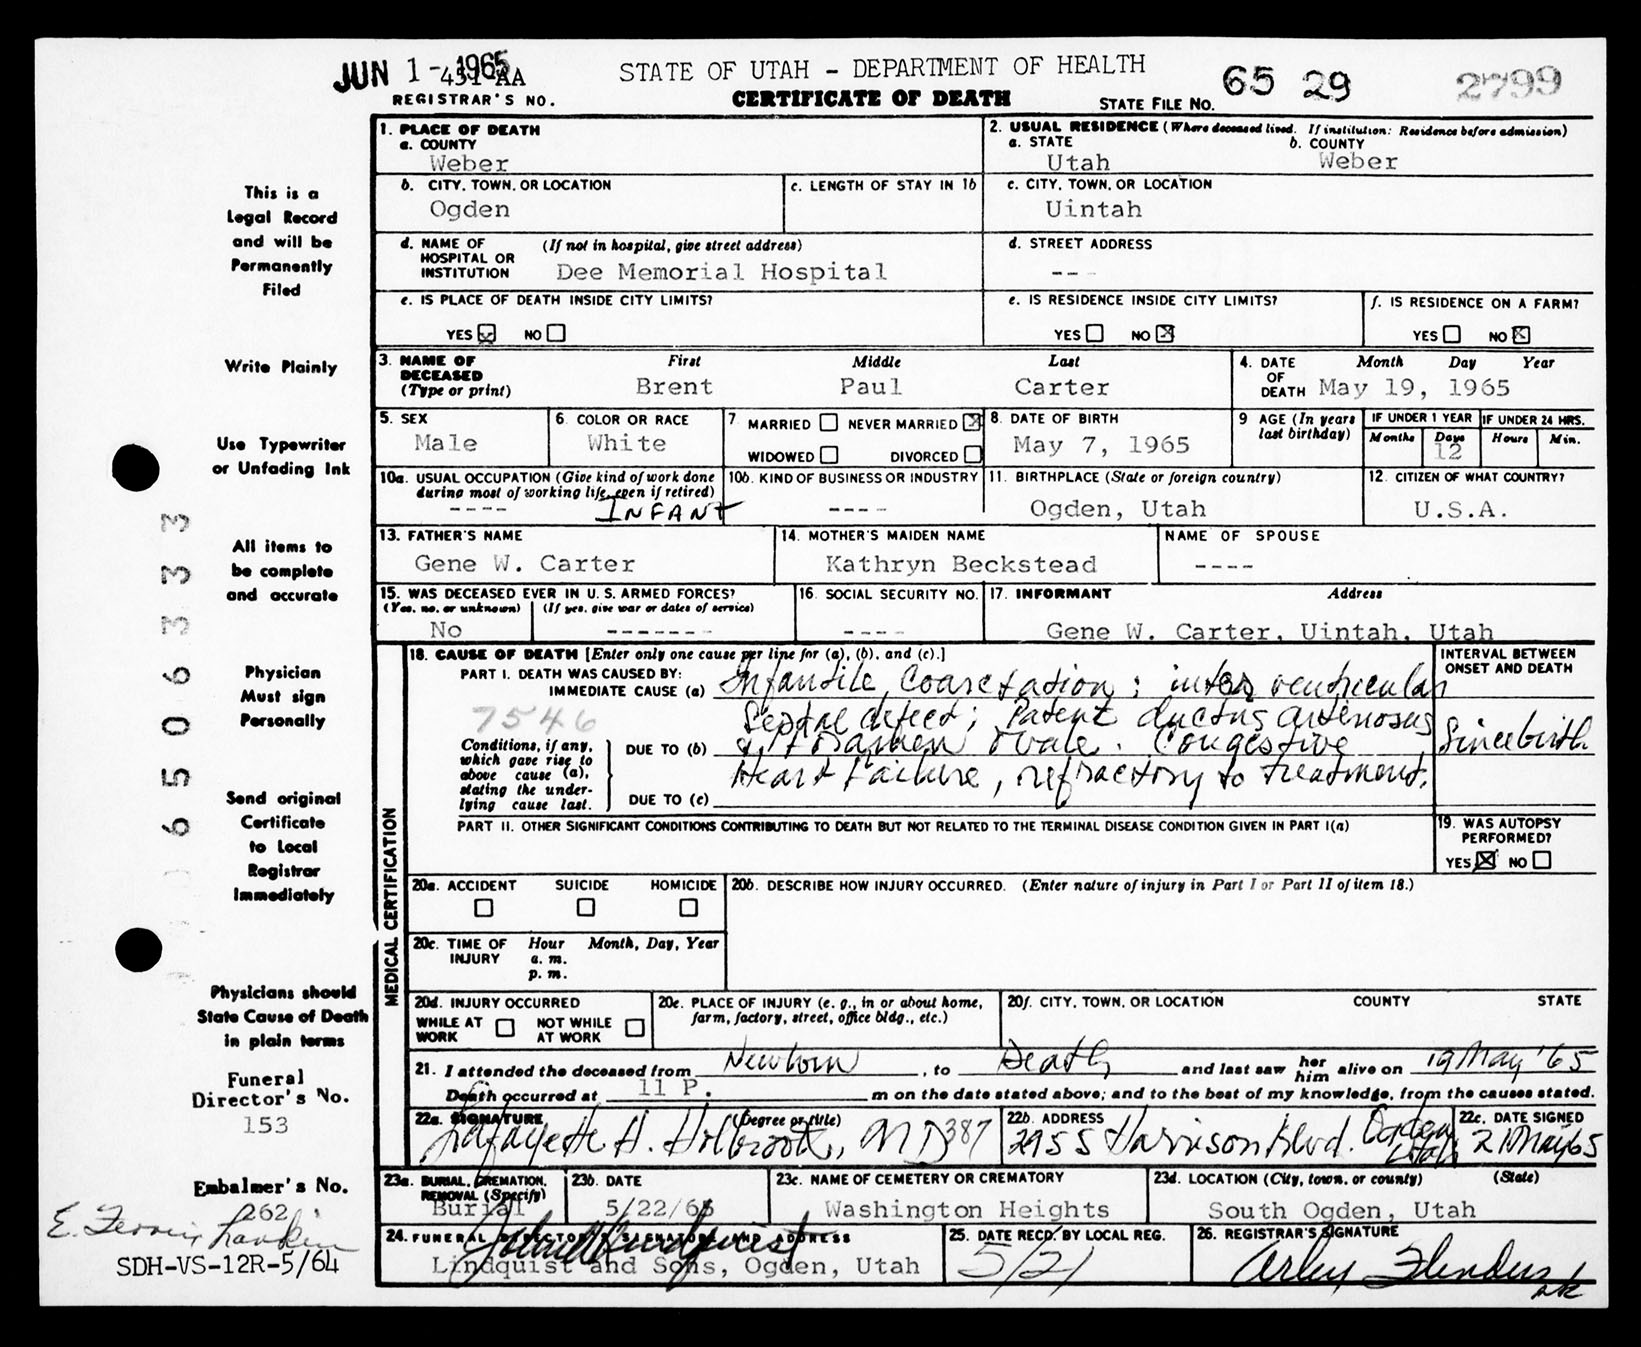 JUN 1 - 1965
451 AA
REGISTRAR'S NO.
STATE OF UTAH - DEPARTMENT OF HEALTH
CERTIFICATE OF DEATH
STATE FILE NO. 65 29 2799
This is a
Legal Record
and will be
Permanently
Filed
Write Plainly
Use Typewriter
or Unfading Ink
All items to
be complete
and accurate
Physician
Must sign
Personally
Send original
Certificate
to Local
Registrar
Immediately
Physicians should
State Cause of Death
in plain terms
Funeral
Director's No.
153
Embalmer's No.
262
E. Ferrin Larkin
SDH-VS-12R-5/64
6 5 0 6 3 3 3
1. PLACE OF DEATH
a. COUNTY
Weber
2. USUAL RESIDENCE (Where deceased lived. If institution: Residence before admission)
a. STATE b. COUNTY
Utah Weber
b. CITY, TOWN, OR LOCATION
Ogden
c. LENGTH OF STAY IN 1b
c. CITY, TOWN, OR LOCATION
Uintah
d. NAME OF (If not in hospital, give street address)
HOSPITAL OR
INSTITUTION Dee Memorial Hospital
d. STREET ADDRESS
---
e. IS PLACE OF DEATH INSIDE CITY LIMITS?
YES NO
e. IS RESIDENCE INSIDE CITY LIMITS?
YES NO
f. IS RESIDENCE ON A FARM?
YES NO
3. NAME OF First Middle Last
DECEASED
(Type or print) Brent Paul Carter
4. DATE Month Day Year
OF
DEATH May 19, 1965
5. SEX
Male
6. COLOR OR RACE
White
7. MARRIED NEVER MARRIED
WIDOWED DIVORCED
8. DATE OF BIRTH
May 7, 1965
9 AGE (In years
last birthday)
IF UNDER 1 YEAR IF UNDER 24 HRS.
Months Days Hours Min.
12
10a. USUAL OCCUPATION (Give kind of work done
during most of working life, even if retired)
---- INFANT
10b. KIND OF BUSINESS OR INDUSTRY
----
11. BIRTHPLACE (State or foreign country)
Ogden, Utah
12. CITIZEN OF WHAT COUNTRY?
U.S.A.
13. FATHER'S NAME
Gene W. Carter
14. MOTHER'S MAIDEN NAME
Kathryn Beckstead
NAME OF SPOUSE
----
15. WAS DECEASED EVER IN U. S. ARMED FORCES?
(Yes, no, or unknown) (If yes, give war or dates of service)
No -------
16. SOCIAL SECURITY NO.
----
17. INFORMANT Address
Gene W. Carter, Uintah, Utah
MEDICAL CERTIFICATION
18. CAUSE OF DEATH [Enter only one cause per line for (a), (b), and (c).]
INTERVAL BETWEEN
ONSET AND DEATH
PART I. DEATH WAS CAUSED BY:
IMMEDIATE CAUSE (a) Infantile Coarctation; inter ventricular
7546
Septal defect; Patent ductus arteriosus
DUE TO (b) & foramen ovale. Congestive
Since birth
Heart Failure, refractory to treatment.
DUE TO (c)
Conditions, if any,
which gave rise to
above cause (a),
stating the under-
lying cause last.
PART II. OTHER SIGNIFICANT CONDITIONS CONTRIBUTING TO DEATH BUT NOT RELATED TO THE TERMINAL DISEASE CONDITION GIVEN IN PART I(a)
19. WAS AUTOPSY
PERFORMED?
YES NO
20a. ACCIDENT SUICIDE HOMICIDE
20b. DESCRIBE HOW INJURY OCCURRED. (Enter nature of injury in Part I or Part II of item 18.)
20c. TIME OF Hour Month, Day, Year
INJURY a. m.
p. m.
20d. INJURY OCCURRED
WHILE AT NOT WHILE
WORK AT WORK
20e. PLACE OF INJURY (e. g., in or about home,
farm, factory, street, office bldg., etc.)
20f. CITY, TOWN, OR LOCATION COUNTY STATE
21. I attended the deceased from Newborn, to Death and last saw her him alive on 19 May '65
Death occurred at 11 P. m on the date stated above; and to the best of my knowledge, from the causes stated.
22a. SIGNATURE (Degree or title)
Lafayette H. Holbrook, MD 387
22b. ADDRESS
2955 Harrison Blvd. Ogden Utah
22c. DATE SIGNED
21 May 65
23a. BURIAL, CREMATION,
REMOVAL (Specify)
Burial
23b. DATE
5/22/65
23c. NAME OF CEMETERY OR CREMATORY
Washington Heights
23d. LOCATION (City, town, or county) (State)
South Ogden, Utah
24. FUNERAL DIRECTOR'S SIGNATURE AND ADDRESS
John A Lindquist
Lindquist and Sons, Ogden, Utah
25. DATE RECD. BY LOCAL REG.
5/21
26. REGISTRAR'S SIGNATURE
Arley Flinders